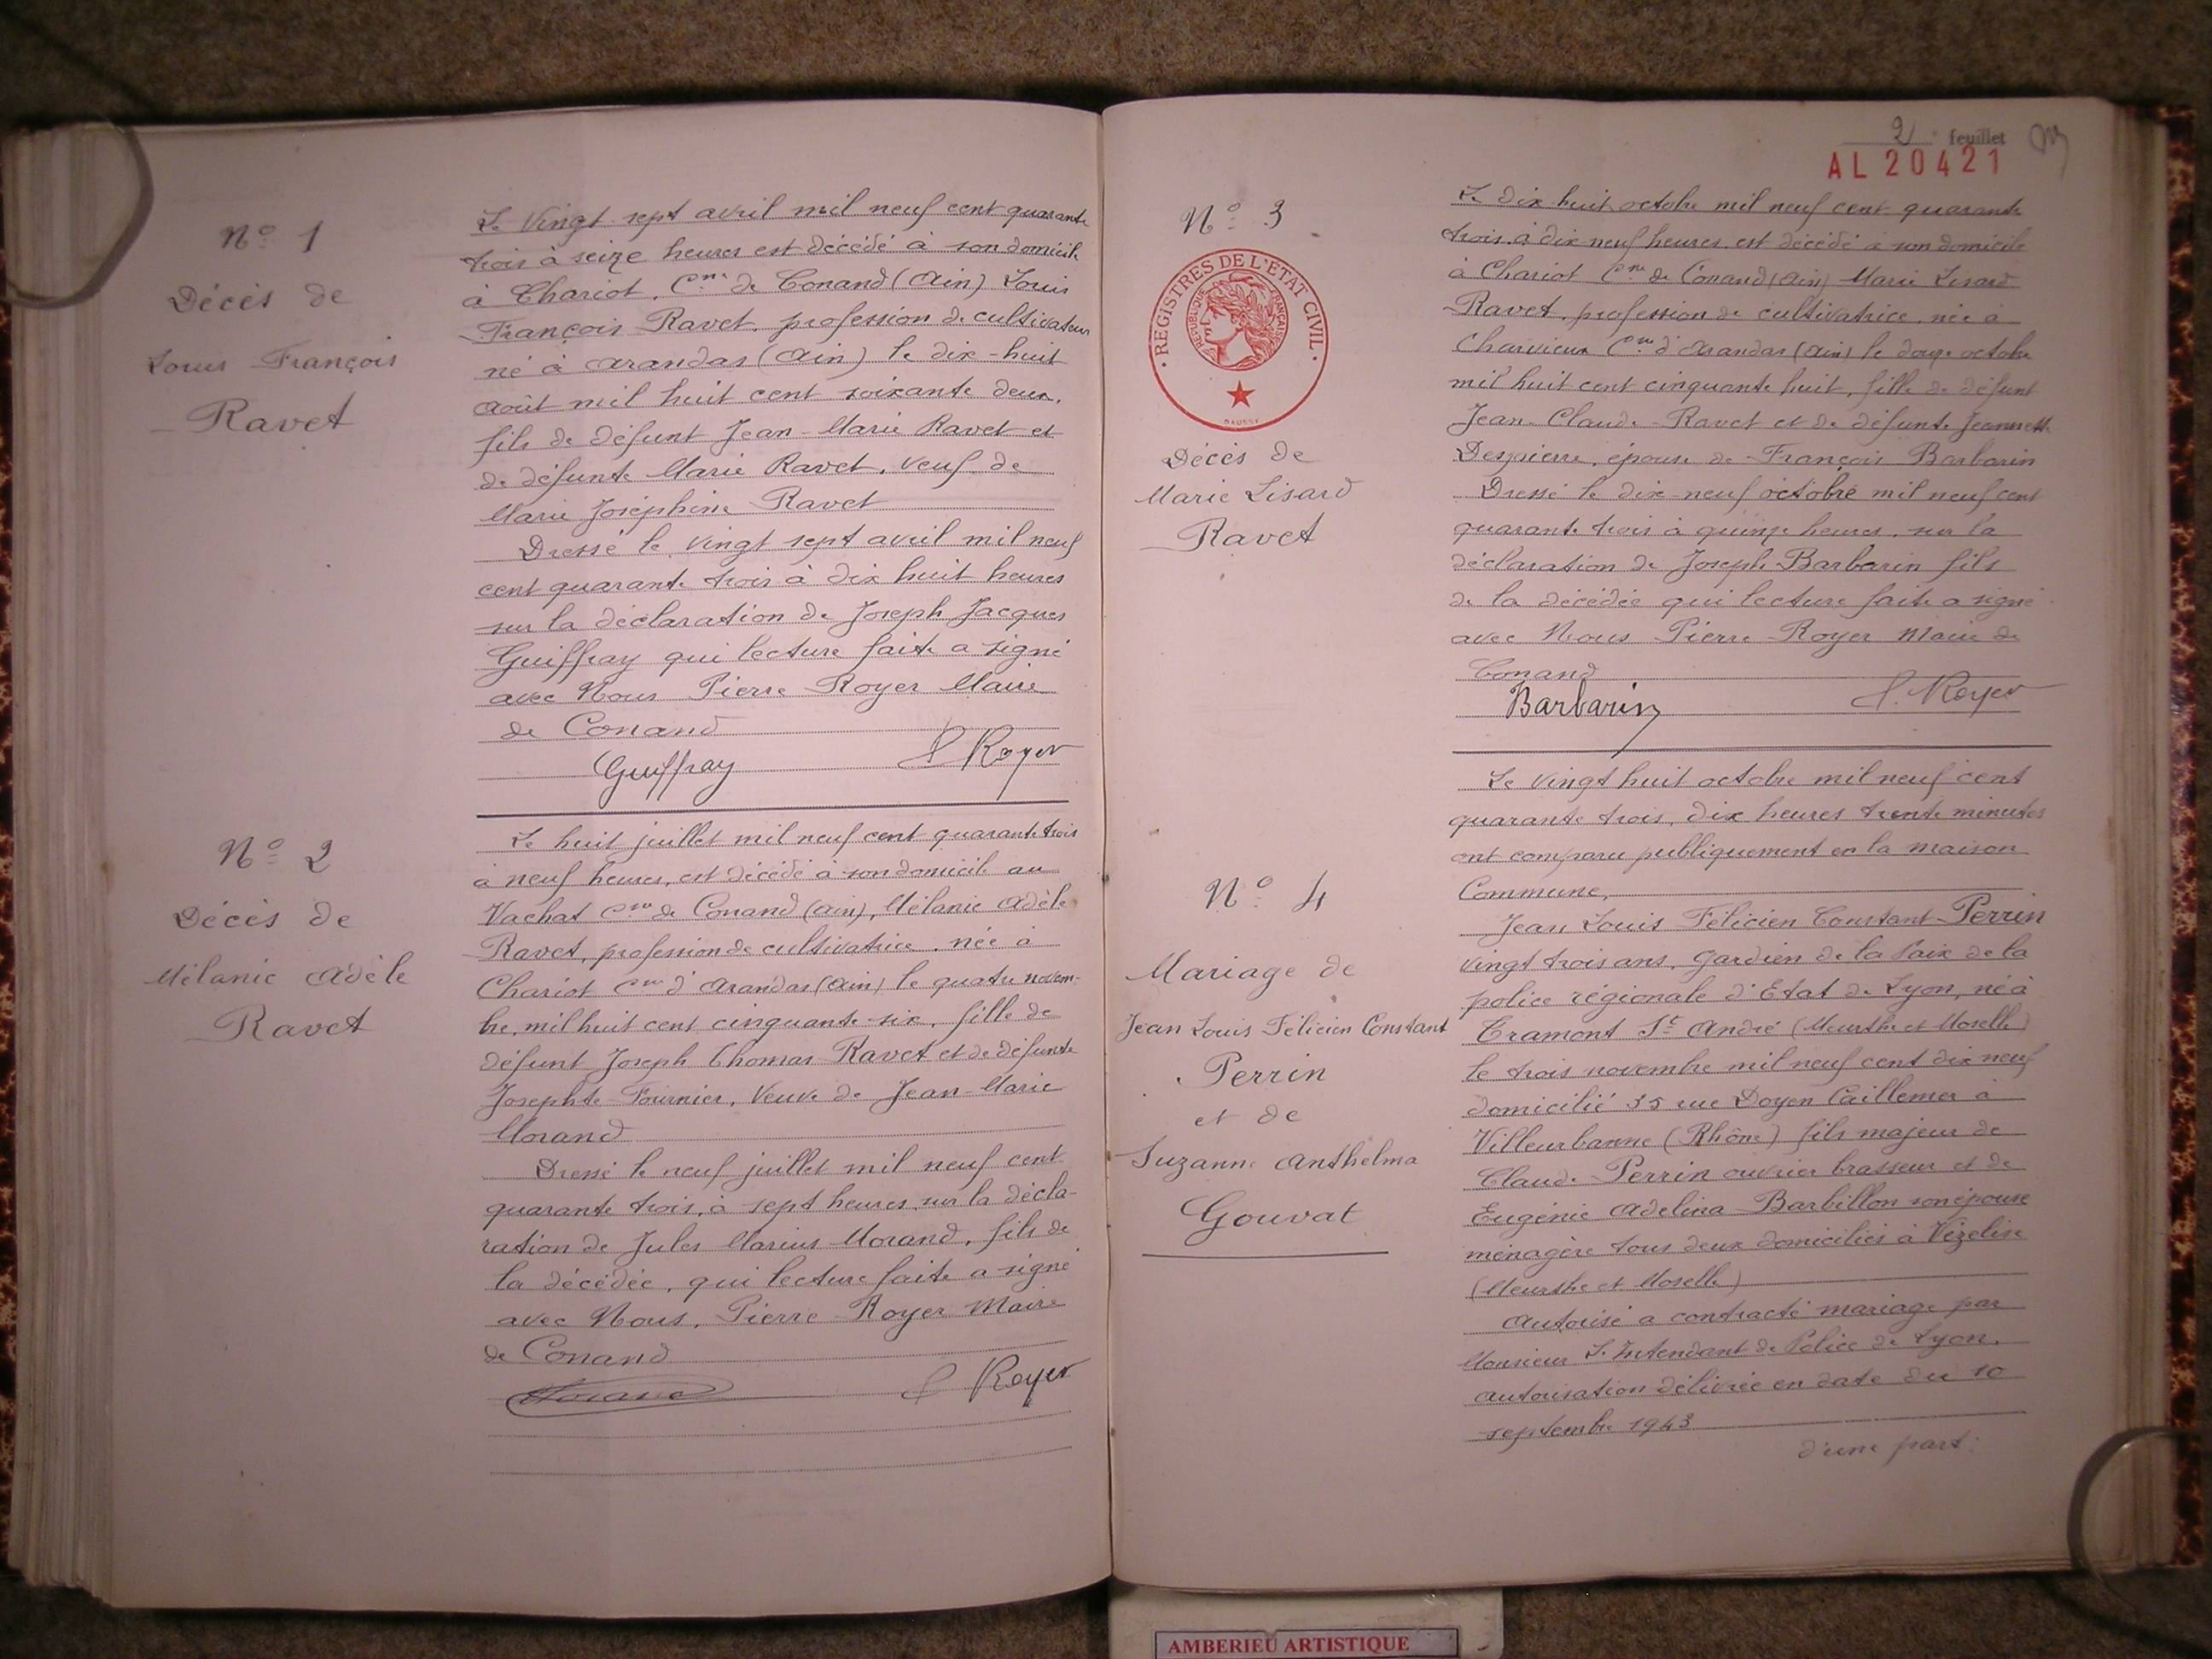 N° 1
Décès de
Louis François
Ravet
Le vingt sept avril mil neuf cent quarante
trois à seize heures est décédé à son domicile
à Chariot, Cne de Conand (Ain) Louis
François Ravet, profession de cultivateur
né à Arandas (Ain) le dix-huit
août mil huit cent soixante deux,
fils de défunt Jean-Marie Ravet et
de défunte Marie Ravet, veuf de
Marie Joséphine Ravet
Dressé le vingt sept avril mil neuf
cent quarante trois à dix huit heures
sur la déclaration de Joseph Jacques
Guiffray qui lecture faite a signé
avec Nous Pierre Royer Maire
de Conand
Guiffray P Royer
N° 2
Décès de
Mélanie Adèle
Ravet
Le huit juillet mil neuf cent quarante trois
à neuf heures, est décédé à son domicile au
Vachat Cne de Conand (Ain), Mélanie Adèle
Ravet, profession de cultivatrice, née à
Chariot Cne d'Arandas (Ain) le quatre novem-
bre, mil huit cent cinquante-six, fille de
défunt Joseph Thomas Ravet et de défunte
Josephte Fournier, Veuve de Jean-Marie
Morand
Dressé le neuf juillet mil neuf cent
quarante trois, à sept heures, sur la décla-
ration de Jules Marius Morand, fils de
la décédée, qui lecture faite a signé
avec Nous, Pierre Royer Maire
de Conand
Morand P Royer
2 feuillet
AL 20421
N° 3
REGISTRES DE L'ETAT CIVIL
REPUBLIQUE FRANÇAISE
Décès de
Marie Lisard
Ravet
Le dix huit octobre mil neuf cent quarante
trois à dix neuf heures est décédé à son domicile
à Chariot Cne de Conand (Ain) Marie Lisard
Ravet, profession de cultivatrice, née à
Charvieux Cne d'Arandas (Ain) le douze octobre
mil huit cent cinquante huit, fille de défunt
Jean-Claude Ravet et de défunte Jeannette
Despierre, épouse de François Barbarin
Dressé le dix-neuf octobre mil neuf cent
quarante trois à quinze heures, sur la
déclaration de Joseph Barbarin fils
de la décédée qui lecture faite a signé
avec Nous Pierre Royer Maire de
Conand
Barbarin P. Royer
N° 4
Mariage de
Jean Louis Félicien Constant
Perrin
et de
Suzanne Anthelma
Gouvat
Le vingt huit octobre mil neuf cent
quarante trois, dix heures trente minutes
ont comparu publiquement en la maison
Commune,
Jean Louis Félicien Constant-Perrin
vingt trois ans, gardien de la Paix de la
police régionale d'Etat de Lyon, né à
Tramont St André (Meurthe et Moselle)
le trois novembre mil neuf cent dix neuf
domicilié 35 rue Doyen Caillemer à
Villeurbanne (Rhône) fils majeur de
Claude Perrin ouvrier brasseur et de
Eugénie Adelina Barbillon son épouse
ménagère tous deux domiciliés à Vézelise
(Meurthe et Moselle)
Autorisé a contracté mariage par
Monsieur L'Intendant de Police de Lyon,
autorisation délivrée en date du 10
septembre 1943
d'une part:
AMBERIEU ARTISTIQUE